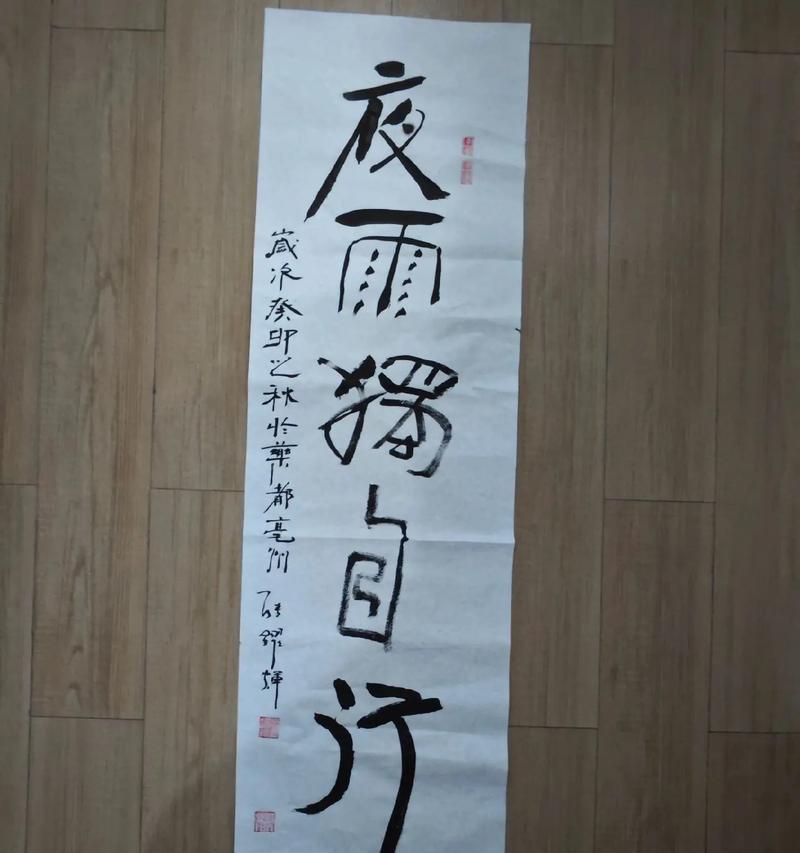 夜雨獨自行
歲次癸卯之秋於藥都亳州 耀輝